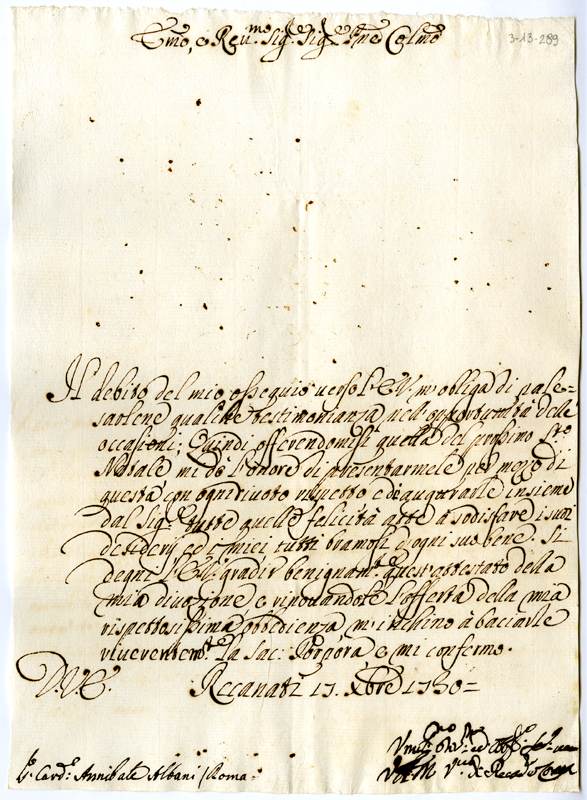 Emo, e Reu.mo Sig.r Sig.r Pne Colmo
3-13-289
Il debito del mio ossequio uerso l'E.V. m'obliga di pale=
sarlene qualche testimonianza nell'opportunità delle
occasioni; Quindi offerendomisi quella del prossimo Sto
Natale mi dò l'onore di presentarmele per mezzo di
questa con ogni diuoto rispetto e di augurarle insieme
dal Sig.re tutte quelle felicità atte à sodisfare i suoi
desiderij ed i miei tutti bramosi d'ogni suo bene. Si
degni l'E.V. gradir benignam.te quest'attestato della
mia diuozione e rinouandole l'offerta della mia
rispettosissima obbedienza m'inchino à baciarle
riuerentem.te la Sac. Porpora e mi confermo.
D.V.E. Recanati 17. Xbre 1730=
S.r Card.e Annibale Albani / Roma
Vmil.mo